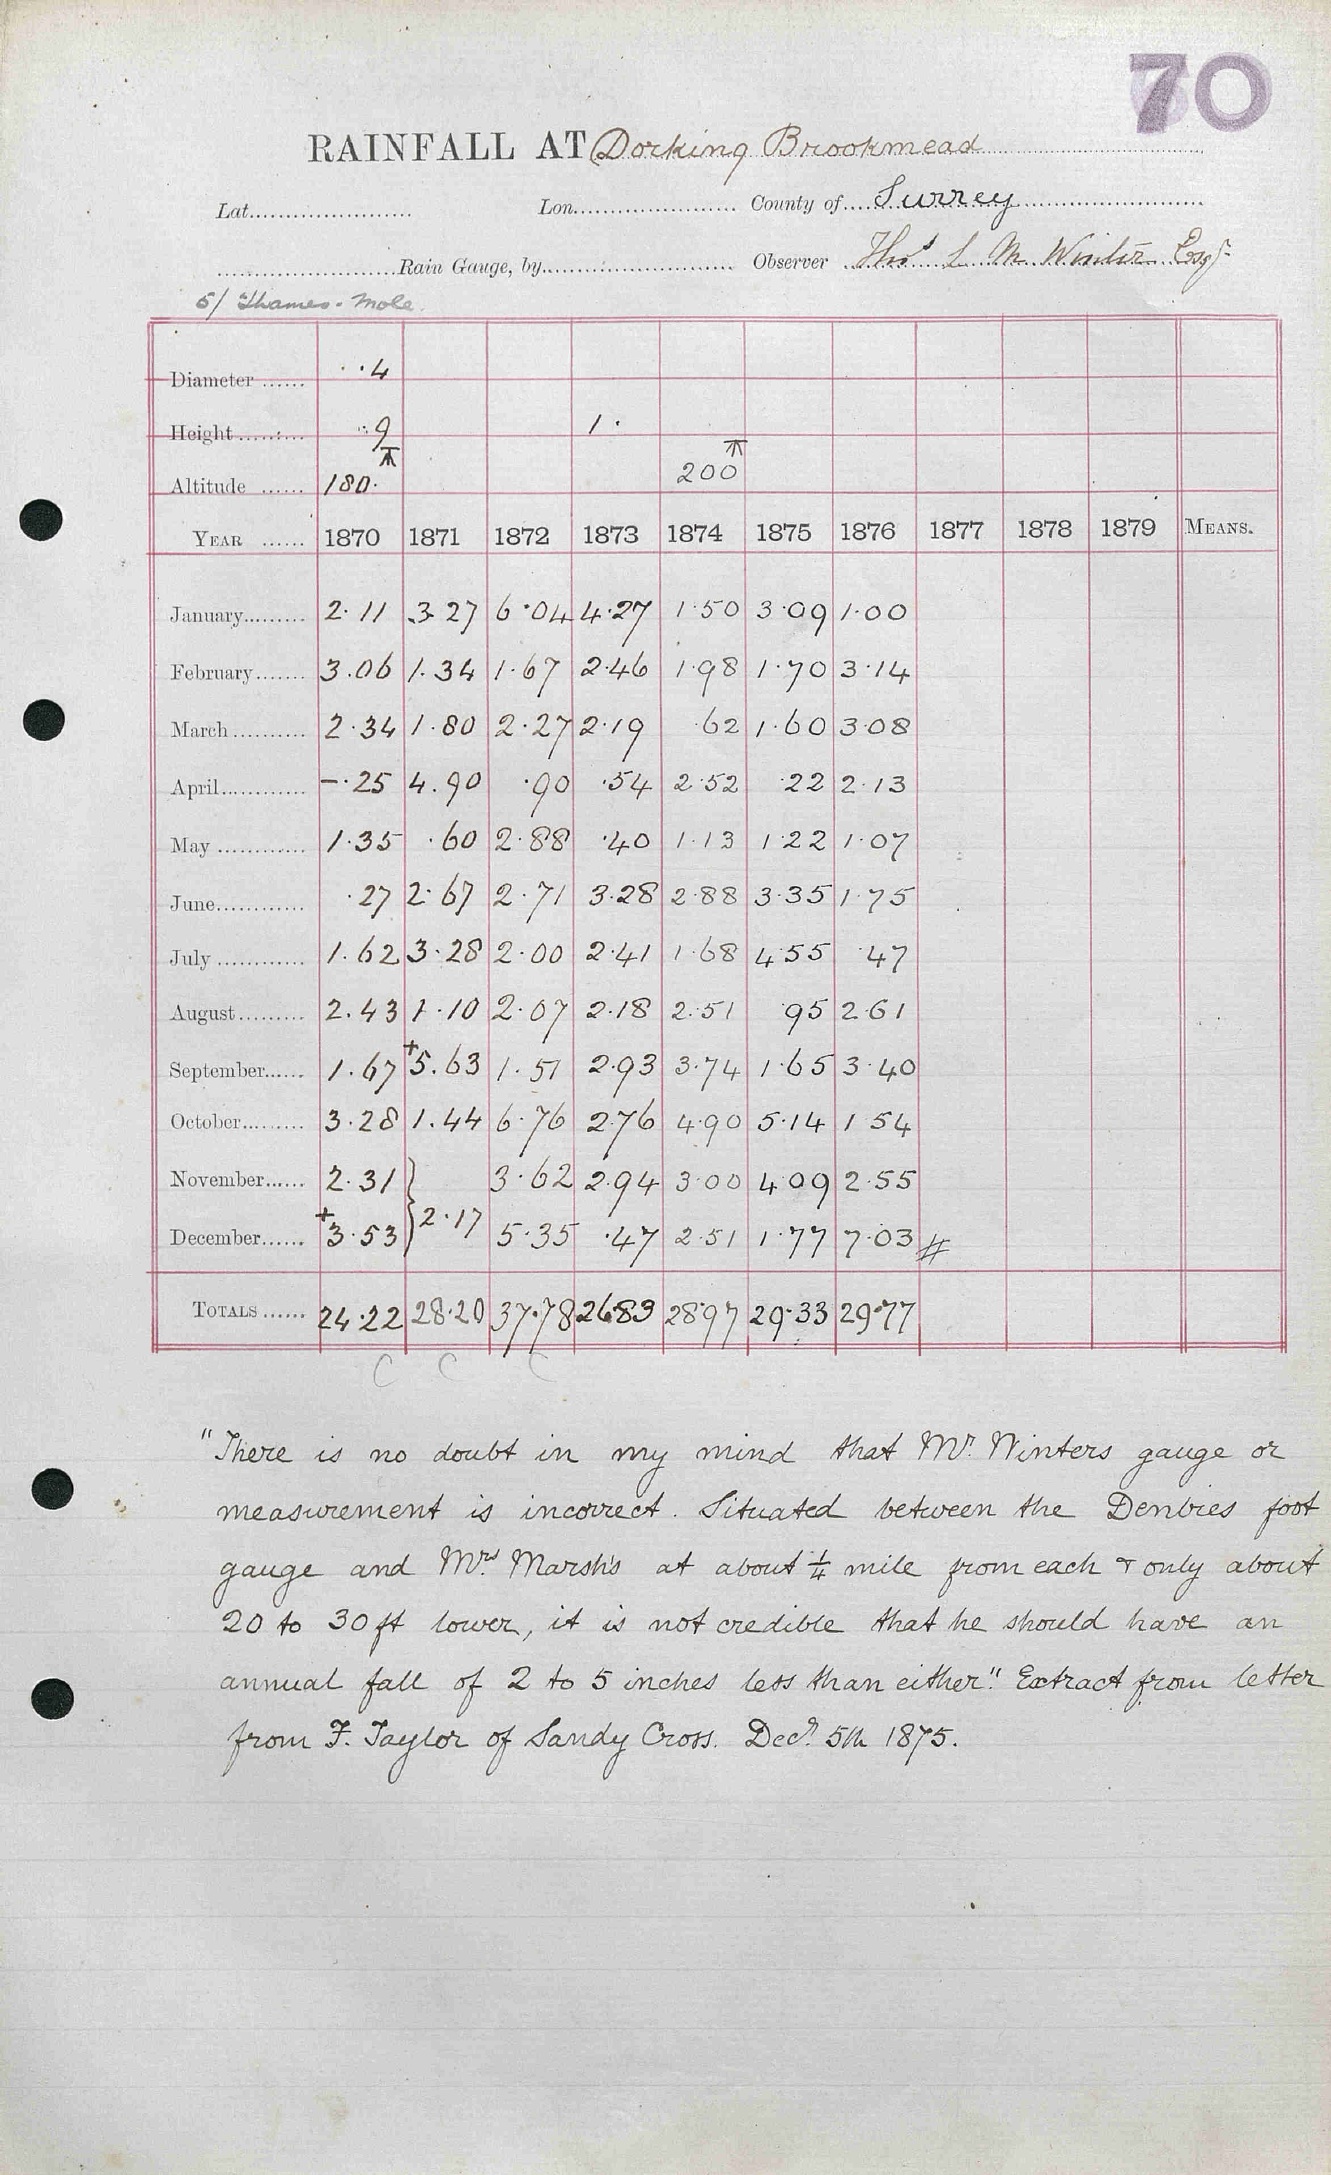 70
RAINFALL AT Dorking Brookmead
Lat. Lon. County of Surrey
Rain Gauge, by Observer Thos L M Winter Esqr
5/ Thames. Mole.
Diameter ·4
Height 9 1·
Altitude 180· 200
YEAR 1870 1871 1872 1873 1874 1875 1876 1877 1878 1879 MEANS.
January 2·11 3·27 6·04 4·27 1·50 3·09 1·00
February 3·06 1·34 1·67 2·46 1·98 1·70 3·14
March 2·34 1·80 2·27 2·19 ·62 1·60 3·08
April –·25 4·90 ·90 ·54 2·52 ·22 2·13
May 1·35 ·60 2·88 ·40 1·13 1·22 1·07
June ·27 2·67 2·71 3·28 2·88 3·35 1·75
July 1·62 3·28 2·00 2·41 1·68 4·55 ·47
August 2·43 1·10 2·07 2·18 2·51 95 2·61
September 1·67 +5·63 1·51 2·93 3·74 1·65 3·40
October 3·28 1·44 6·76 2·76 4·90 5·14 1 54
November 2·31 3·62 2·94 3·00 4·09 2·55
December +3·53 } 2·17 5·35 ·47 2·51 1·77 7·03 #
TOTALS 24·22 28·20 37·78 26·83 28·97 29·33 29·77
C C C
"There is no doubt in my mind that Mr. Winters gauge or
measurement is incorrect. Situated between the Denbies foot
gauge and Mrs. Marsh's at about 1/4 mile from each & only about
20 to 30 ft lower, it is not credible that he should have an
annual fall of 2 to 5 inches less than either." Extract from letter
from F. Taylor of Sandy Cross. Decr. 5th 1875.